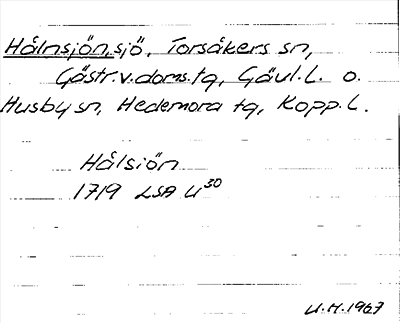 Hålnsjön, sjö, Torsåkers sn,
Gästr.v.doms.tg, Gävl.L. o.
Husby sn, Hedemora tg, Kopp.L.
Hålsiön
1719 LSA U30
U.H.1967